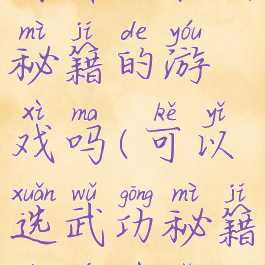 mì jí de yóu
秘籍的游
xì ma kě yǐ
戏吗(可以
xuǎn wǔ gōng mì jí
选武功秘籍